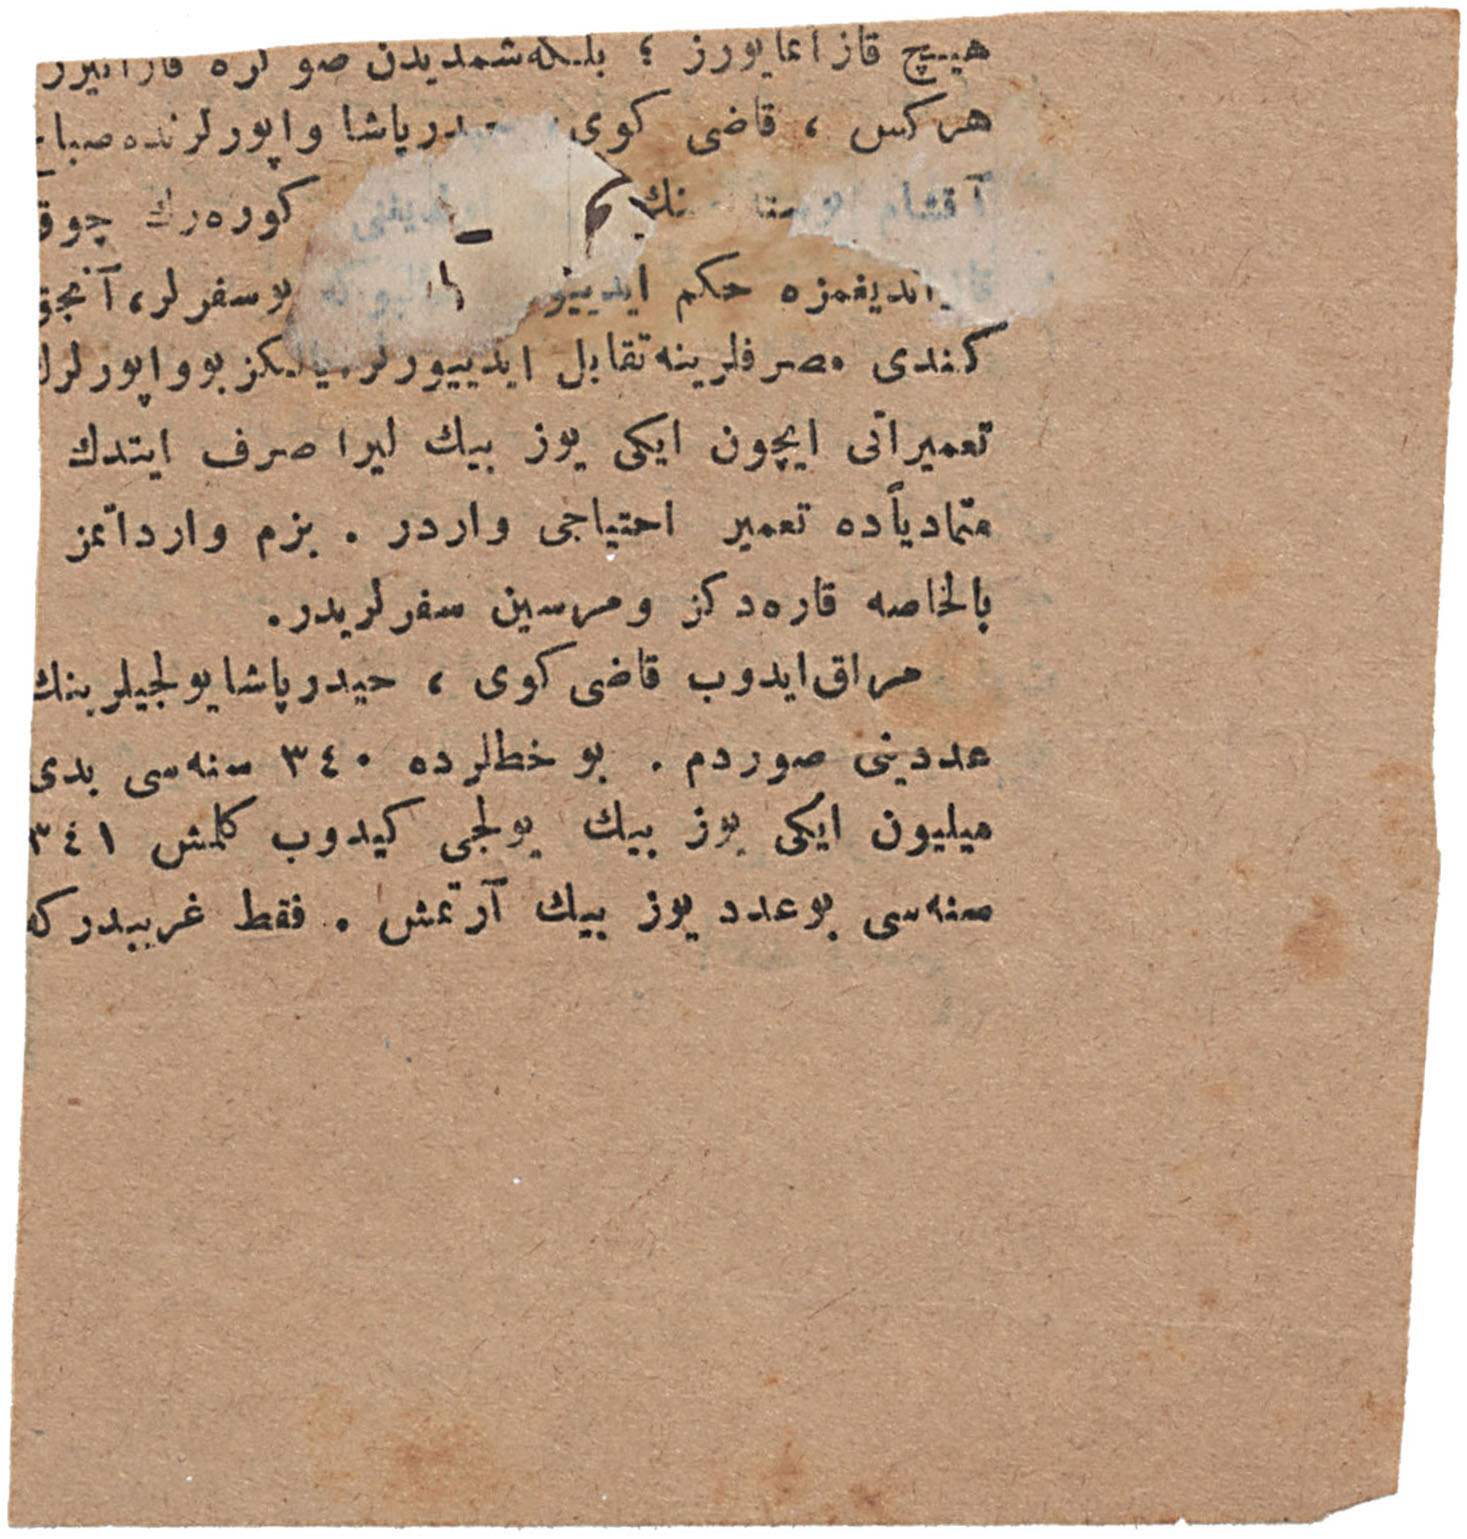 هیـچ قازانمایورز ؛ بلـکه شمدیدن صوکره قازانیرز
هرکس ، قاضی کوی، حیدرپاشا واپورلرنده صباح
آقشام کوره‌رك چوق
حکم ایدییور بوسفرلر، آنجق
کندی مصرفلرینه تقابل ایدییورلر. یالکز بو واپورلرك
تعمیراتی ایچون ایکی یوز بیك لیرا صرف ایتدك
متمادیاً ده تعمیر احتیاجی واردر . بزم وارداتمز
بالخاصه قاره‌دکز ومرسین سفرلریدر.
مراق ایدوب قاضی کوی ، حیدرپاشا یولجیلرینك
عددینی صوردم . بو خطلرده ۳٤۰ سنه‌سی یدی
میلیون ایکی یوز بیك یولجی کیدوب کلمش ۳٤۱
سنه‌سی بوعدد یوز بیك آرتمش . فقط غریبدرکه